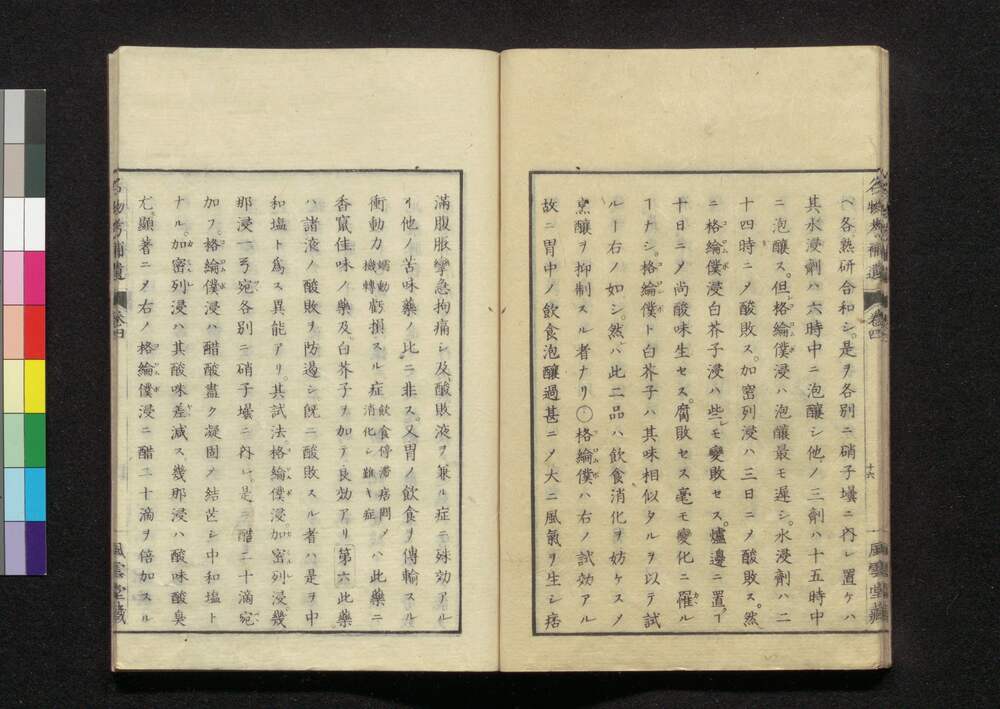 ヘ各熟研合和シ。是ヲ各別ニ硝子壜ニ内レ置ケハ
其水浸劑ハ六時中ニ泡釀シ他ノ三劑ハ十五時中
ニ泡釀ス。但格綸僕浸ハ泡釀最モ遲シ。水浸劑ハ二
十四時ニメ酸敗ス。加密列浸ハ三日ニメ酸敗ス。然
ニ格綸僕浸白芥子浸ハ些モ變敗セス。爐邊ニ置ー
十日ニメ尚酸味生セス。腐敗セス毫モ變化ニ罹ル
ーナシ。格綸僕ト白芥子ハ其味相似タルヲ以テ試
ルー右ノ如シ。然ハ此二品ハ飲食消化ヲ妨ケスメ
烝釀ヲ抑制スル者ナリ○格綸僕ハ右ノ試効アル
故ニ胃中ノ飲食泡釀過甚ニメ大ニ風氣ヲ生シ痞
十六
風雲堂藏
滿腹脹攣急拘痛シ及酸敗液ヲ兼ル症ニ殊効アル
ー他ノ苦味藥ノ比ニ非ス。又胃ノ飲食ヲ傳輸スル
衝動力蠕動機轉虧損スル症飲食停滯痞悶消化シ難キ症ノハ此藥ニ
香竄佳味ノ藥及白芥子ヲ加テ良効アリ 第六此藥
ハ諸液ノ酸敗ヲ防遏シ既ニ酸敗スル者ハ是ヲ中
和塩ト爲ス異能アリ。其試法格綸僕浸加密列浸。幾
那浸一弓宛各別ニ硝子壜ニ内レ。是ニ醋二十滴宛
加フ。格綸僕浸ハ醋酸盡ク凝固メ結芒シ中和塩ト
ナル。加密列浸ハ其酸味差減ス。幾那浸ハ酸味酸臭
尤顯著ニメ右ノ格綸僕浸ニ醋二十滴ヲ倍加スル
名物考補遺
卷四
風雲堂藏